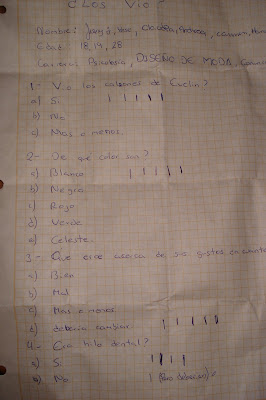 ¿Los Vio?
Nombre: Jose, Claudia, Andrea, Carmen,
Edad: 18, 19, 28
Carrera: Psicologia, DISEÑO DE MODA,
1.- Vio los calzones de Evelin?
a) Si | | | | |
b) No
c) Mas o menos.
2.- De que color son?
a) Blanco | | | | |
b) Negro
c) Rojo
d) Verde
e) Celeste.
3.- Que opina acerca de sus gustos en cuanto
a) Bien
b) Mal
c) Mas o menos
d) deberia cambiar. | | | | |
4.- Era hilo dental?
a) Si | | | |
b) No | (Pero deberia)